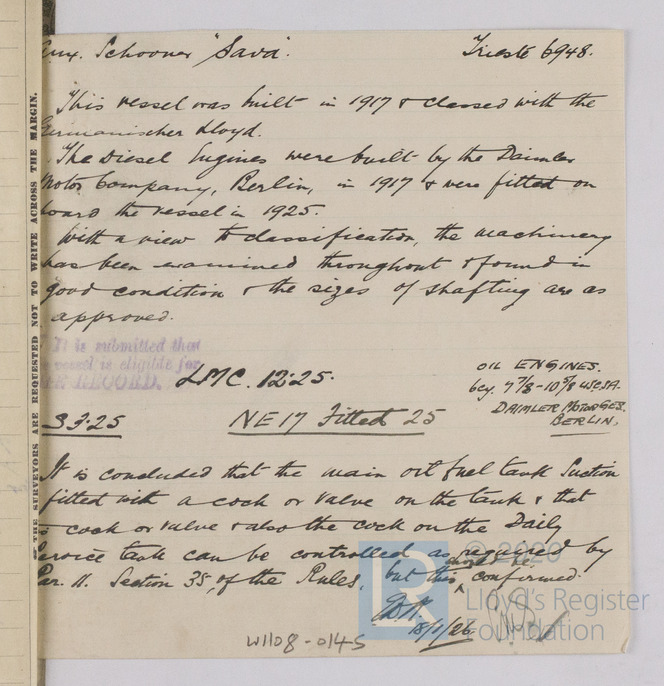 Aux. Schooner "Sava". Trieste 6948.
This vessel was built in 1917 & classed with the
Germanischer Lloyd.
The Diesel Engines were built by the Daimler
Motor Company, Berlin, in 1917 & were fitted on
board the vessel in 1925.
With a view to classification, the machinery
has been examined throughout & found in
good condition & the sizes of shafting are as
approved.
It is submitted that
vessel is eligible for
THE RECORD.
LMC. 12.25.
OIL ENGINES.
6cy. 7 7/8 - 10 5/8 4SCSA.
DAIMLER MOTORGES.
BERLIN.
S 3.25
NE 17 Fitted 25
It is concluded that the main oil fuel tank suction
fitted with a cock or valve on the tank & that
cock or valve & also the cock on the Daily
Service tank can be controlled as required by
Par. 11. Section 35, of the Rules, but this should be confirmed.
18/1/26
W1108-0145
THE SURVEYORS ARE REQUESTED NOT TO WRITE ACROSS THE MARGIN.
LR
© 2020
Lloyd's Register
Foundation